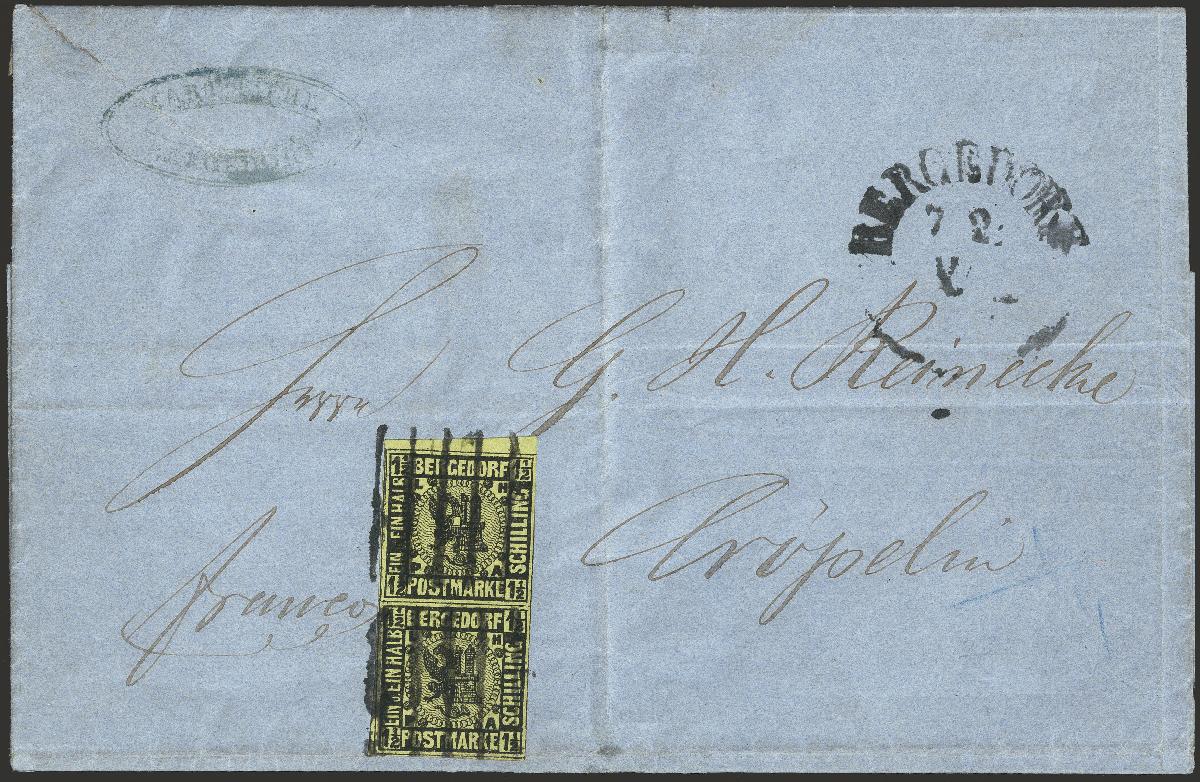 BERGEDORF
7 2
Herrn G. H. Reinecke
Cröpelin
franco
1½ BERGEDORF 1½
EIN U. EIN HALB
SCHILLING
L H
P A
1½ POSTMARKE 1½
1½ BERGEDORF 1½
EIN U. EIN HALB
SCHILLING
H
A
1½ POSTMARKE 1½